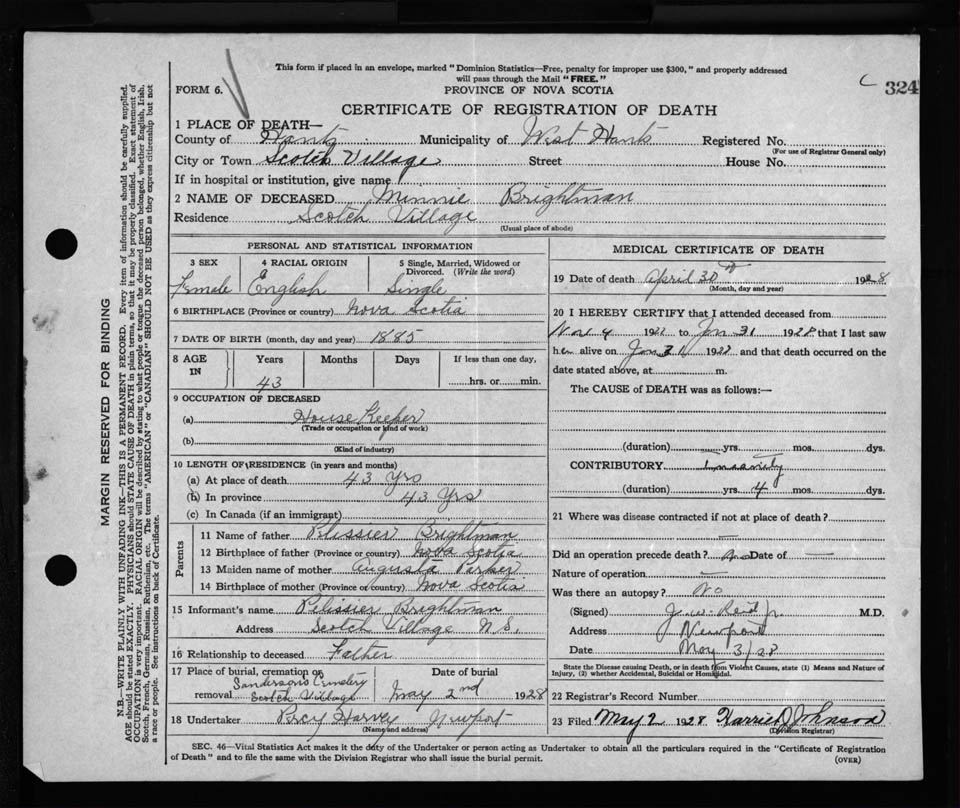 This form if placed in an envelope, marked "Dominion Statistics—Free, penalty for improper use $300," and properly addressed
will pass through the Mail "FREE."
FORM 6.
PROVINCE OF NOVA SCOTIA
324
CERTIFICATE OF REGISTRATION OF DEATH
1 PLACE OF DEATH—
County of Hants Municipality of West Hants Registered No.
(For use of Registrar General only)
City or Town Scotch Village Street House No.
If in hospital or institution, give name
2 NAME OF DECEASED Minnie Brightman
Residence Scotch Village
(Usual place of abode)
PERSONAL AND STATISTICAL INFORMATION
3 SEX 4 RACIAL ORIGIN 5 Single, Married, Widowed or
Divorced. (Write the word)
Female English Single
6 BIRTHPLACE (Province or country) Nova Scotia
7 DATE OF BIRTH (month, day and year) 1885
8 AGE IN Years Months Days If less than one day,
43 hrs. or min.
9 OCCUPATION OF DECEASED
(a) House Keeper
(Trade or occupation or kind of work)
(b)
(Kind of industry)
10 LENGTH OF RESIDENCE (in years and months)
(a) At place of death 43 Yrs
(b) In province 43 Yrs
(c) In Canada (if an immigrant)
Parents
11 Name of father Pelissier Brightman
12 Birthplace of father (Province or country) Nova Scotia
13 Maiden name of mother Augusta Parker
14 Birthplace of mother (Province or country) Nova Scotia
15 Informant's name Pelissier Brightman
Address Scotch Village N.S.
16 Relationship to deceased Father
17 Place of burial, cremation or Date of burial
removal Sandersons Cemetery
Scotch Village May 2nd 1928
18 Undertaker Percy Harvey Newport
(Name and address)
MEDICAL CERTIFICATE OF DEATH
19 Date of death April 30th 1928
(Month, day and year)
20 I HEREBY CERTIFY that I attended deceased from
4 to Jan 31 1928 that I last saw
her alive on Jan 31 and that death occurred on the
date stated above, at m.
The CAUSE of DEATH was as follows:—
(duration) yrs. mos. dys.
CONTRIBUTORY Insanity
(duration) yrs. 4 mos. dys.
21 Where was disease contracted if not at place of death?
Did an operation precede death? no Date of —
Nature of operation —
Was there an autopsy? No
(Signed) J. W. Reid Jr M.D.
Address Newport
Date May 3/28
State the Disease causing Death, or in death from Violent Causes, state (1) Means and Nature of
Injury, (2) whether Accidental, Suicidal or Homicidal.
22 Registrar's Record Number
23 Filed May 2 1928. Harrie D Johnson
(Division Registrar)
SEC. 46—Vital Statistics Act makes it the duty of the Undertaker or person acting as Undertaker to obtain all the particulars required in the "Certificate of Registration
of Death" and to file the same with the Division Registrar who shall issue the burial permit.
(OVER)
MARGIN RESERVED FOR BINDING
N.B.—WRITE PLAINLY WITH UNFADING INK—THIS IS A PERMANENT RECORD. Every item of information should be carefully supplied.
AGE should be stated EXACTLY. PHYSICIANS should STATE CAUSE OF DEATH in plain terms, so that it may be properly classified. Exact statement of
OCCUPATION is very important. RACIAL ORIGIN will be described by stating to what people or tongue the deceased person belonged, whether English, Irish,
Scotch, French, German, Russian, Ruthenian, etc. The terms "AMERICAN" or "CANADIAN" SHOULD NOT BE USED as they express citizenship but not
a race or people. See instructions on back of Certificate.